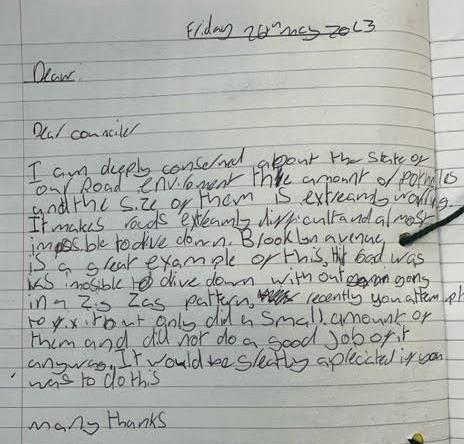 Friday 26th may 2023
Dear
Dear counciler
I am deeply conserned about the state of
our Road enviroment the amount of potholes
and the size of them is extreamly worring.
It makes roads extreamly difficult and almost
impossible to dive down. Brooklyn avenue
is a great example of this, the road was
was imosible to dive down without gong
in a Zig Zag pattern, recently you attempt
to fix it but only did a small amount of
them and did not do a good job of it
anyway. It would be greatly apleciated if you
was to do this
many thanks